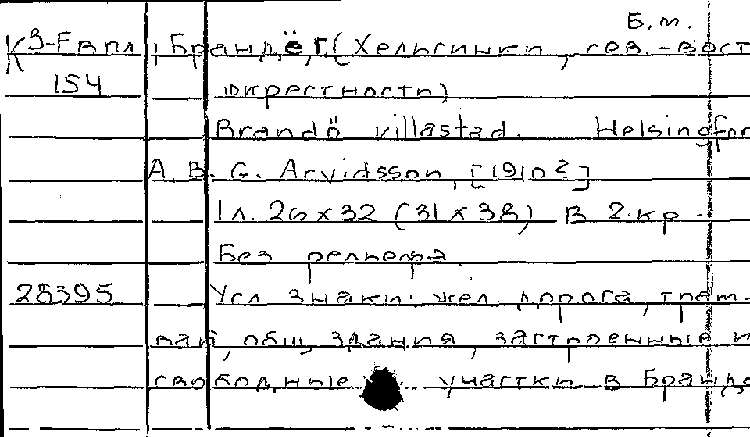 Б.м.
К3-Евпл Брандё, г. (Хельсинки, сев.-вост
154 окрестности)
Brandö villastad. Helsingfor
A.B.G. Arvidsson, [1910?]
1 л. 26 х 32 (31 х 38) в 2 кр.
Без рельефа.
28395 Усл. знаки: жел. дорога, трам-
вай, общ. здания, застроенные и
свободные участки в Брандё